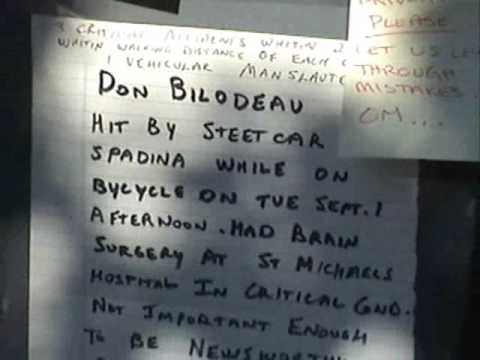 PLEASE
LET US LE
THROUGH
MISTAKES.
OM....
3 CRITICAL ACCIDENTS WHITIN 2
WHITIN WALKING DISTANCE OF EACH
1 VEHICULAR MANSLAUTE
DON BILODEAU
HIT BY STEETCAR
SPADINA WHILE ON
BYCYCLE ON TUE SEPT. 1
AFTERNOON. HAD BRAIN
SURGERY AT ST MICHAELS
HOSPITAL IN CRITICAL CND.
NOT IMPORTANT ENOUGH
TO BE NEWSWORTH